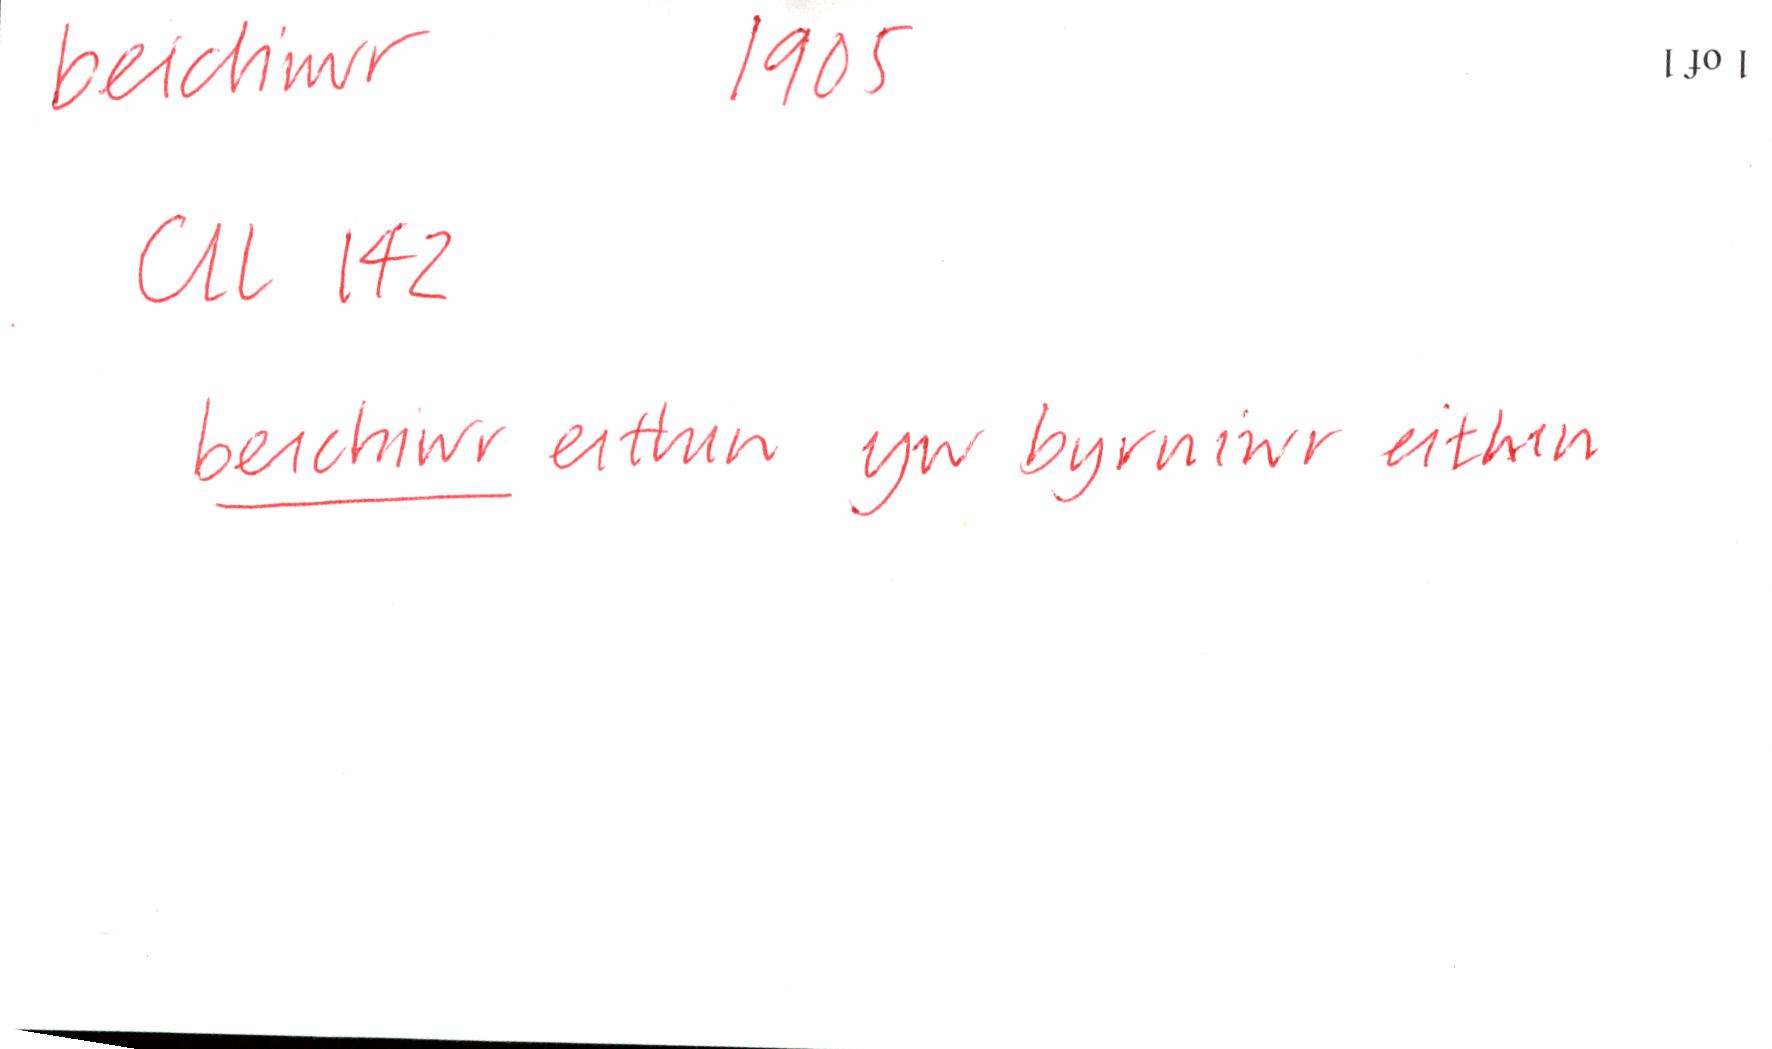 beichiwr 1905 1 of 1
CLlL 142
beichiwr eithin yw byrniwr eithin